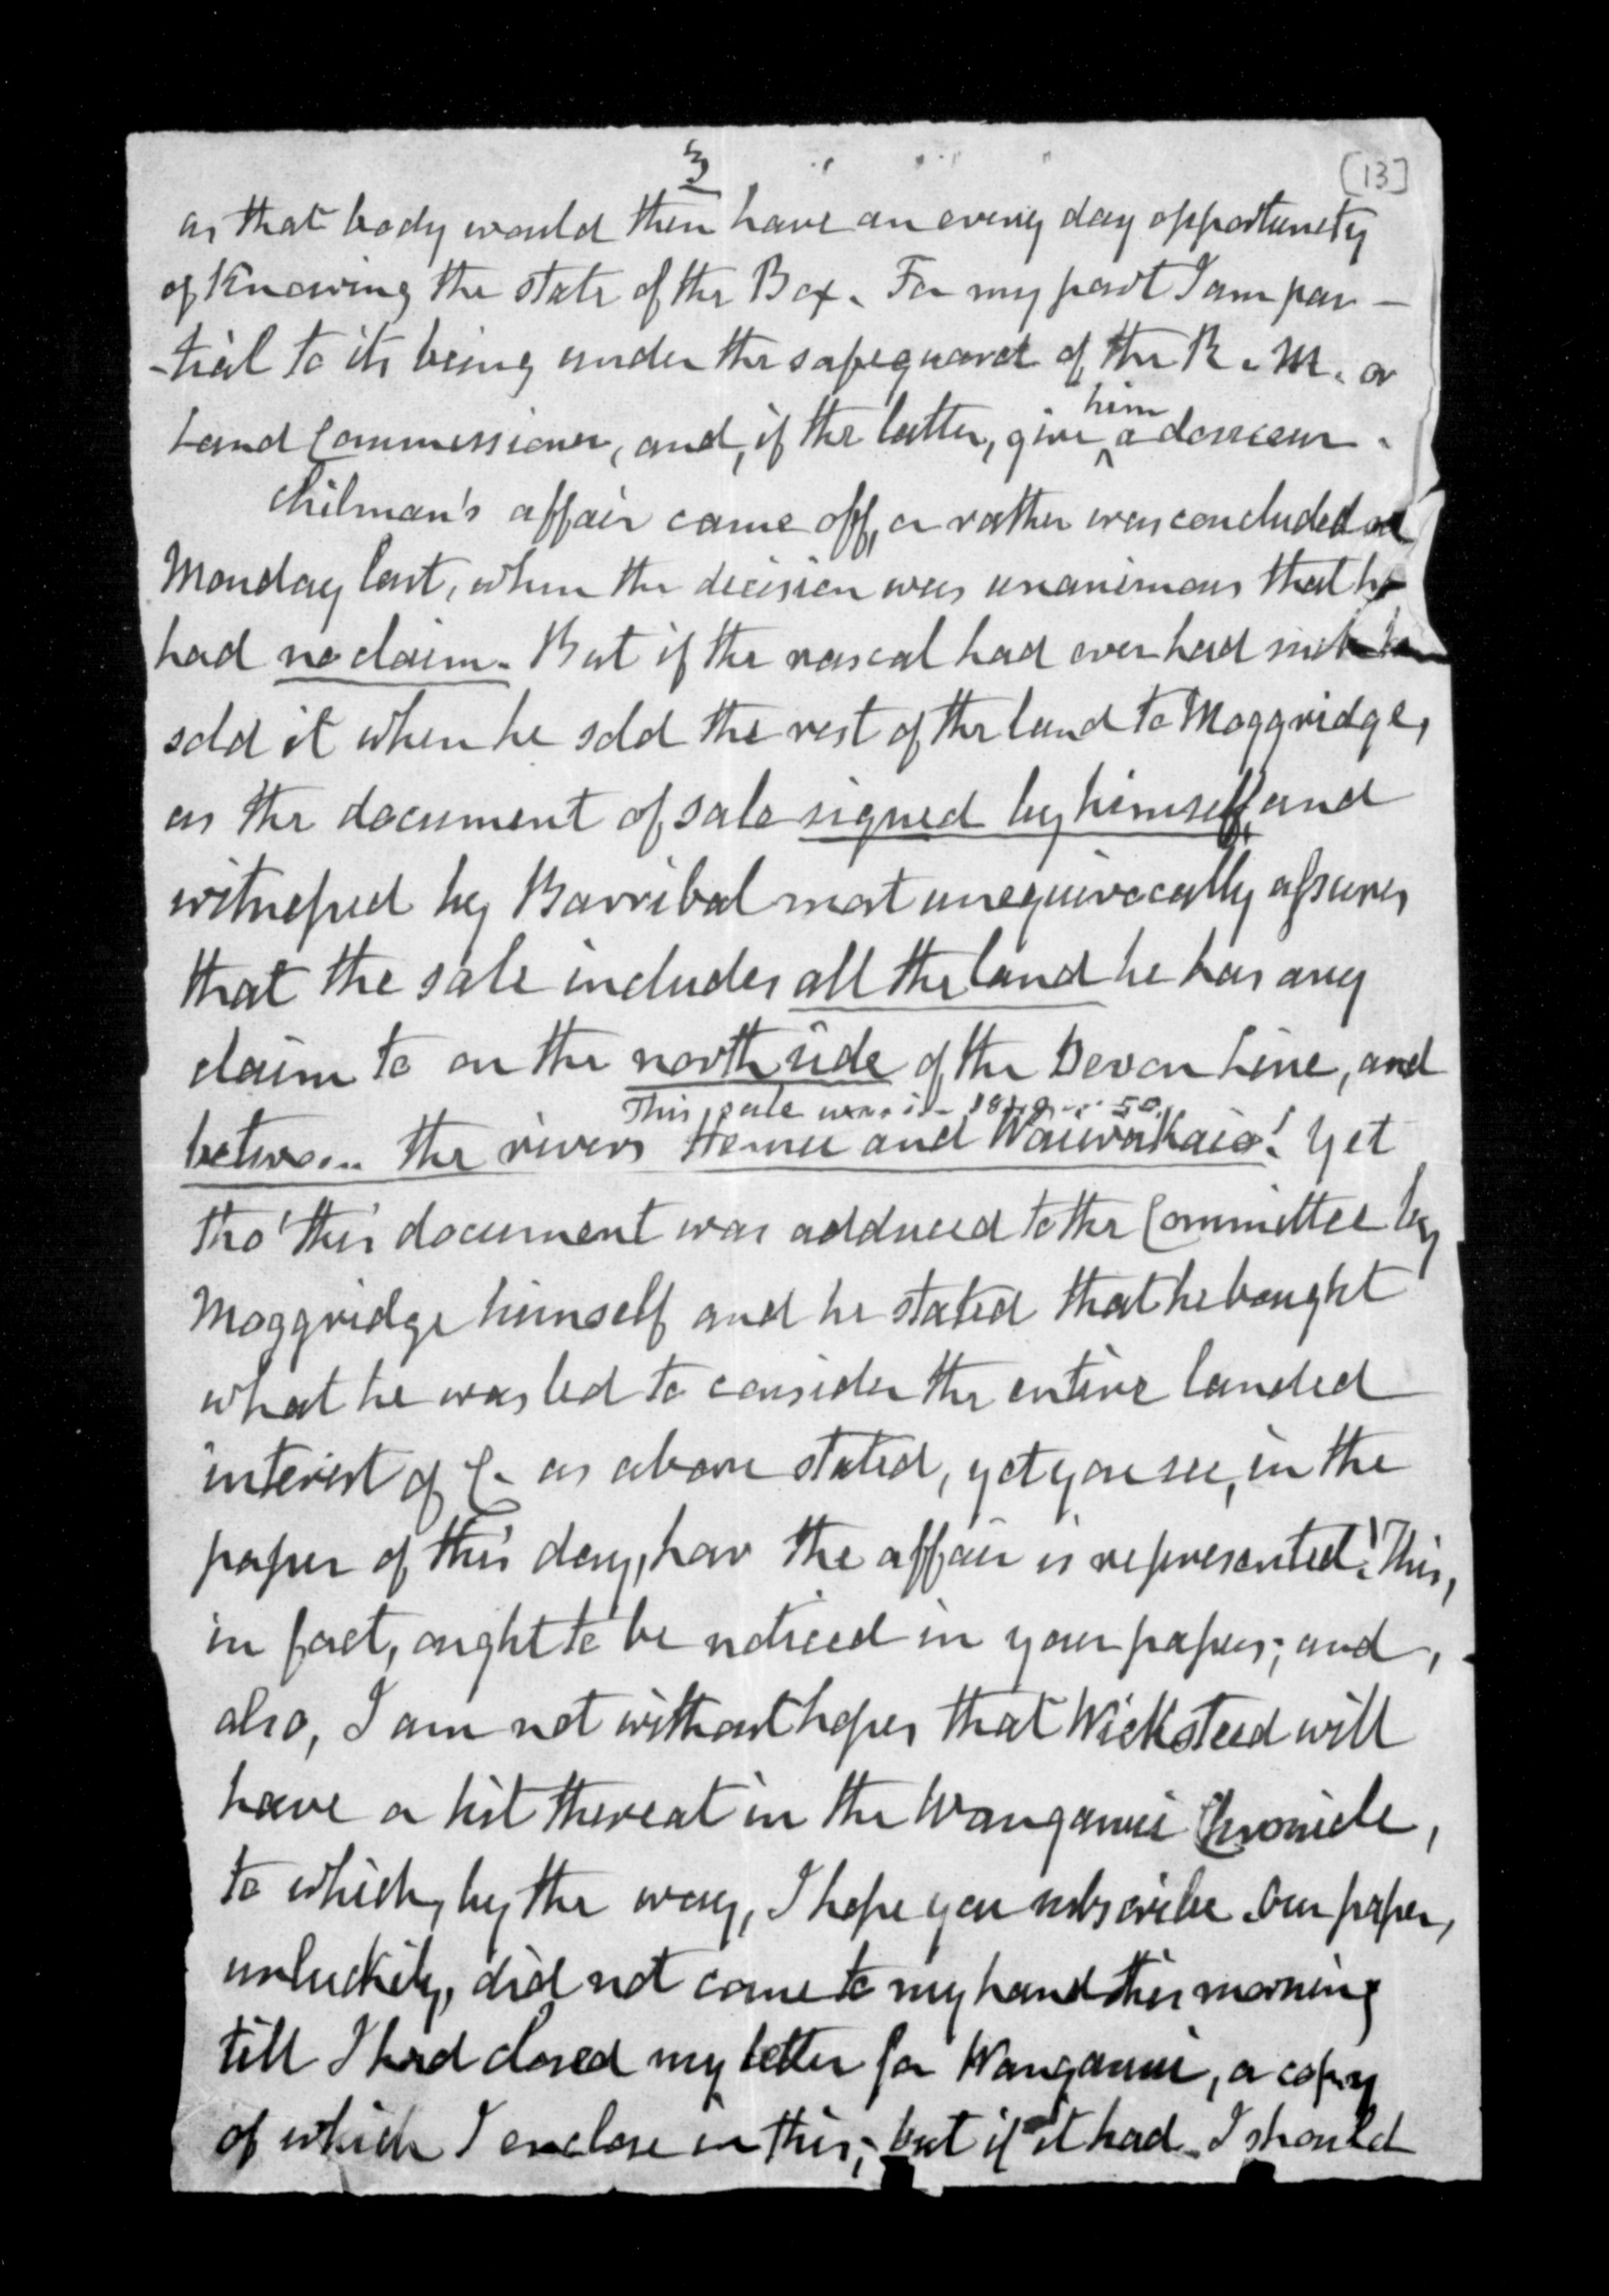 3
[13]
as that body would then have an every day opportunity
of Knowing the state of the Box. For my part I am par-
-tial to its being under the safeguard of the R. M. or
him
Land Commissioner, and, if the latter, give a douceur.
Chilman's affair came off, or rather was concluded on
Monday last, when the decision was unanimous that he
had no claim. But if the rascal had ever had such
sold it when he sold the rest of the land to Moggridge,
as the document of sale signed by himself, and
witnessed by Barribal most unequivocally assures
that the sale includes all the land he has any
claim to on the north side of the Devon Line, and
This sale was in 1849 or 50.
between the rivers Henui and Waiwakaio! Yet
tho' this document was adduced to the Committee by
Moggridge himself and he stated that he bought
what he was led to consider the entire landed
interest of C. as above stated, yet you see, in the
paper of this day, how the affair is represented! This,
in fact, ought to be noticed in your papers; and,
also, I am not without hopes that Wicksteed will
have a hit thereat in the Wanganui Chronicle,
to which, by the way, I hope you subscribe. Our paper,
unluckily, did not come to my hand this morning
till I had closed my letter for Wanganui, a copy
of which I enclose in this; but if it had I should